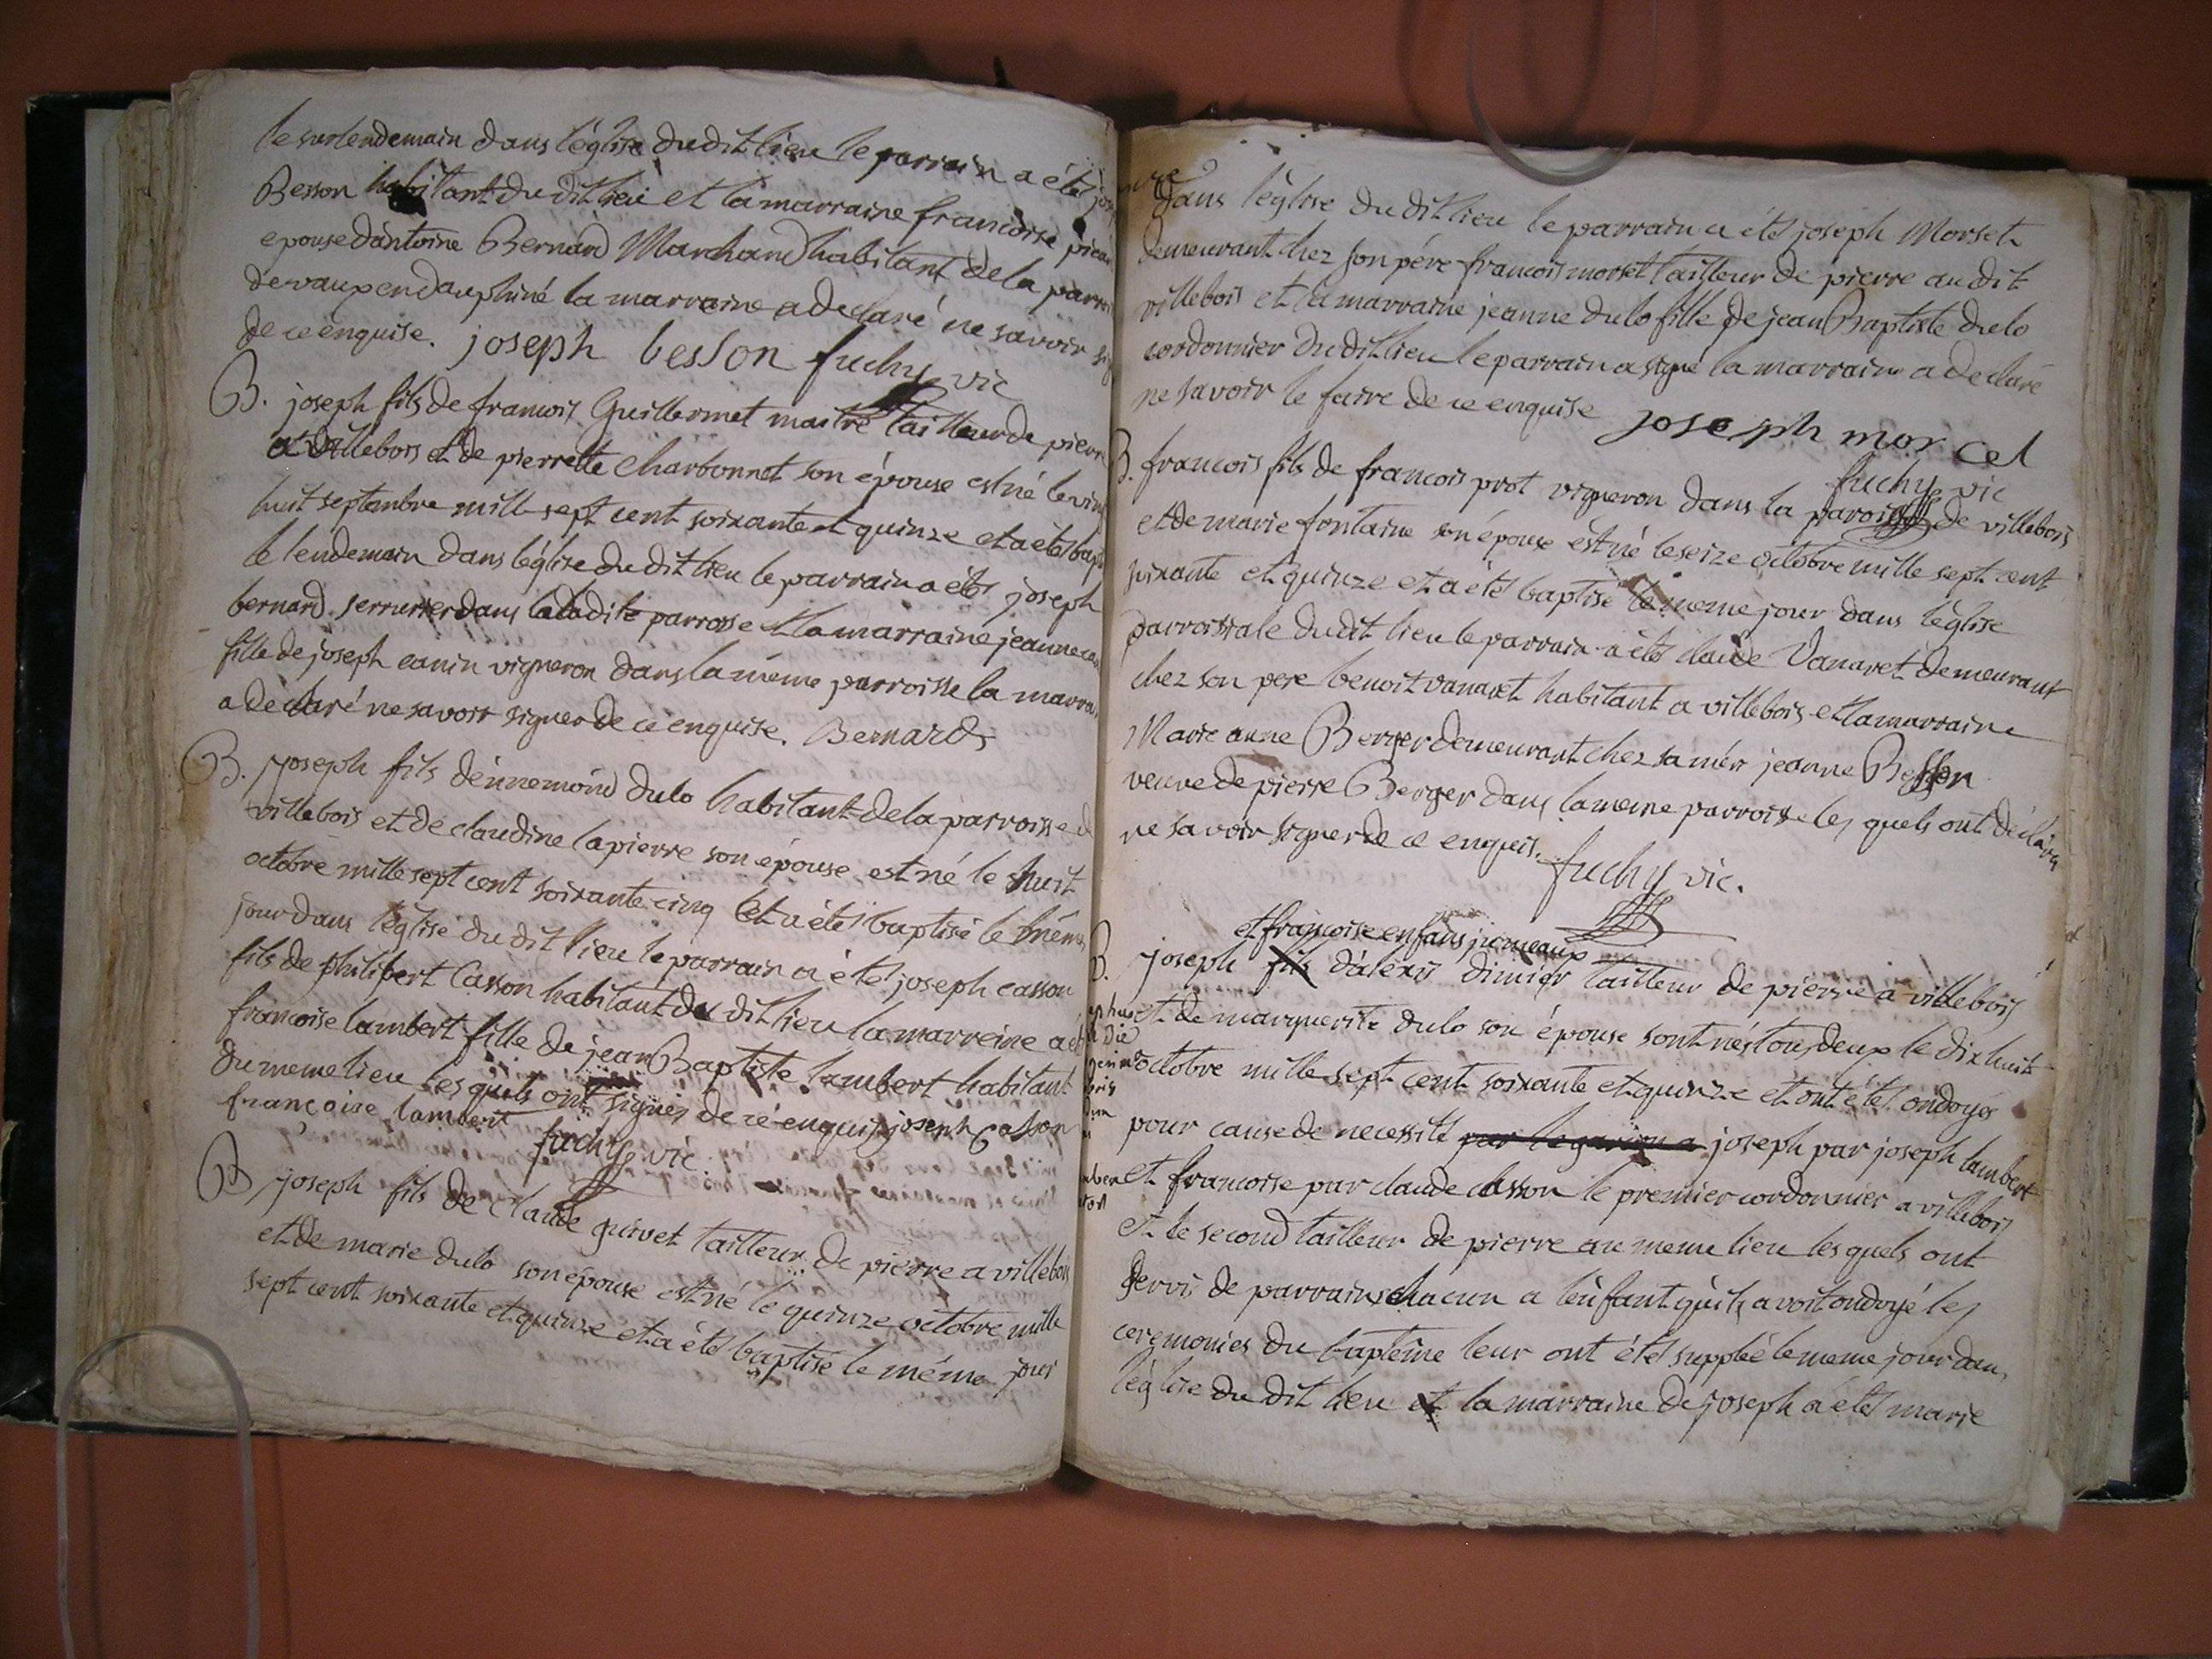 le surlendemain dans l'église du dit lieu le parrain a été
Besson habitant du dit lieu et la marraine francoise
epouse d'antoine Bernard Marchand habitant de la parroi
de vaux en dauphiné la marraine a declaré ne savoir sig
de ce enquise. joseph besson fuchy vic
B. joseph fils de francois Guillermet maitre tailleur de pierre
a villebois et de pierrette charbonnet son épouse est né le vingt
huit septembre mille sept cent soixante et quinze et a été bapt
le lendemain dans l'église du dit lieu le parrain a été joseph
bernard serrurier dans la ladite parroisse et la marraine jeanne
fille de joseph canin vigneron dans la même parroisse la marrai
a déclaré ne savoir signer de ce enquise. Bernard
B. joseph fils d'ennemond dulo habitant de la parroisse d
villebois et de claudine lapierre son épouse est né le huit
octobre mille sept cent soixante cinq et a été baptisé le même
jour dans l'église du dit lieu le parrain a été joseph casson
fils de philibert Casson habitant du dit lieu la marreine a
francoise lambert fille de jean Baptiste lambert habitant
du meme lieu les quels ont signés de ce enquis joseph Casson
françoise lambert
fuchy vic.
B joseph fils de claude guivet tailleur de pierre a villebois
et de marie dulo son épouse est né le quinze octobre mille
sept cent soixante et quinze et a été baptisé le même jour
dans l'église du dit lieu le parrain a été joseph Morset
demeurant chez son père francois morset tailleur de pierre au dit
villebois et la marraine jeanne dulo fille de jean Baptiste dulo
cordonnier du dit lieu le parrain a signé la marraine a declaré
ne savoir le faire de ce enquise joseph morcel
fuchy vic
B. francois fils de francois prot vigneron dans la paroisse de villebois
et de marie fontaine son épouse est né le seize octobre mille sept cent
soixante et quinze et a été baptisé le meme jour dans l'église
parroissiale du dit lieu le parrain a été claude Vanaret demeurant
chez son pere benoit vanaret habitant a villebois et la marraine
Marie anne Berger demeurant chez sa mère jeanne Besson
veuve de pierre Berger dans la meme parroisse les quels ont déclaré
ne savoir signer de ce enquis. fuchy vic.
et françoise enfans jumeaux
B. joseph fils d'alexis dimier tailleur de pierre a villebois
et de marguerite dulo son épouse sont nés tous deux le dix huit
octobre mille sept cent soixante et quinze et ont été ondoyés
pour cause de necessité par le garçon a joseph par joseph lambert
et francoise par claude casson le premier cordonnier a villebois
et le second tailleur de pierre au meme lieu les quels ont
servis de parrains chacun a l'enfant qu'ils avoit ondoyé les
ceremonies du baptême leur ont été supplée le meme jour dans
l'église du dit lieu et la marraine de joseph a été marie